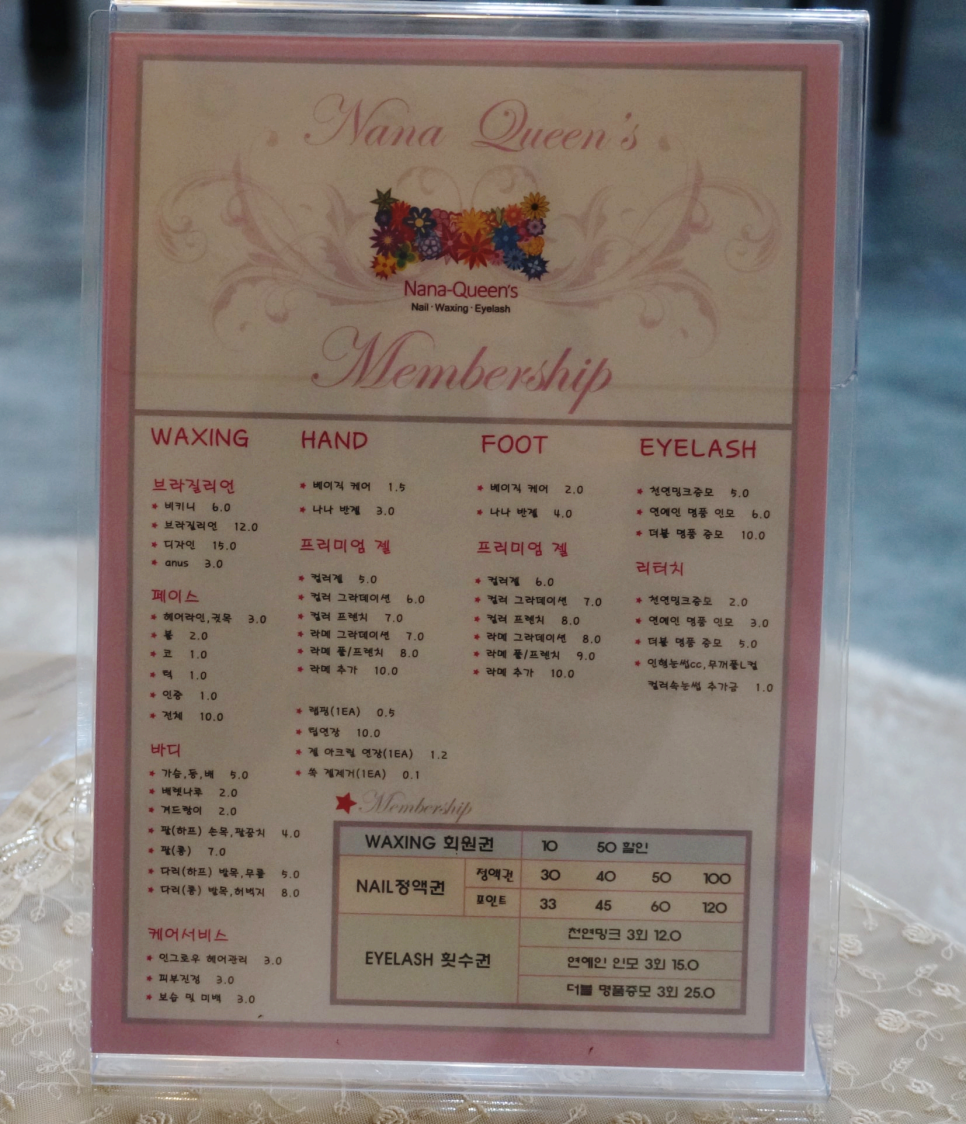 Nana Queen's
Nana-Queen's
Nail · Waxing · Eyelash
Membership
WAXING
브라질리언
* 비키니 6.0
* 브라질리언 12.0
* 디자인 15.0
* anus 3.0
페이스
* 헤어라인,귓목 3.0
* 볼 2.0
* 코 1.0
* 턱 1.0
* 인중 1.0
* 전체 10.0
바디
* 가슴,등,배 5.0
* 배렛나루 2.0
* 겨드랑이 2.0
* 팔(하프) 손목,팔꿈치 4.0
* 팔(롱) 7.0
* 다리(하프) 발목,무릎 5.0
* 다리(롱) 발목,허벅지 8.0
케어서비스
* 인그로우 헤어관리 3.0
* 피부진정 3.0
* 보습 및 미백 3.0
HAND
* 베이직 케어 1.5
* 나나 반젤 3.0
프리미엄 젤
* 컬러젤 5.0
* 컬러 그라데이션 6.0
* 컬러 프렌치 7.0
* 라메 그라데이션 7.0
* 라메 풀/프렌치 8.0
* 라메 추가 10.0
* 랩핑(1EA) 0.5
* 팁연장 10.0
* 젤 아크릴 연장(1EA) 1.2
* 쏙 젤제거(1EA) 0.1
FOOT
* 베이직 케어 2.0
* 나나 반젤 4.0
프리미엄 젤
* 컬러젤 6.0
* 컬러 그라데이션 7.0
* 컬러 프렌치 8.0
* 라메 그라데이션 8.0
* 라메 풀/프렌치 9.0
* 라메 추가 10.0
EYELASH
* 천연밍크증모 5.0
* 연예인 명품 인모 6.0
* 더블 명품 증모 10.0
리터치
* 천연밍크증모 2.0
* 연예인 명품 인모 3.0
* 더블 명품 증모 5.0
* 인형눈썹cc,무꺼풀L컬
컬러속눈썹 추가금 1.0
Membership
WAXING 회원권 10 50 할인
NAIL정액권 정액권 30 40 50 100
포인트 33 45 60 120
EYELASH 횟수권 천연밍크 3회 12.0
연예인 인모 3회 15.0
더블 명품증모 3회 25.0